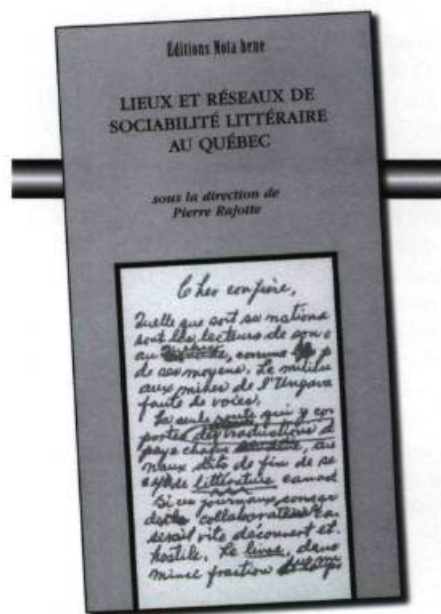 Éditions Nota bene
LIEUX ET RÉSEAUX DE
SOCIABILITÉ LITTÉRAIRE
AU QUÉBEC
sous la direction de
Pierre Rajotte
Cher confrère,
Quelle que soit sa nationa
sont les lecteurs de son o
au comme p
de ses moyens. Le milieu
aux mines de l'Ungava
faute de voies.
La seule route qui y con
portes des traductions d
paye chaque
naux dits de fin de se
littérature canad
Si ces journaux consac
collaborateurs
serait vite découvert et
hostile. Le livre, dans
mince fraction